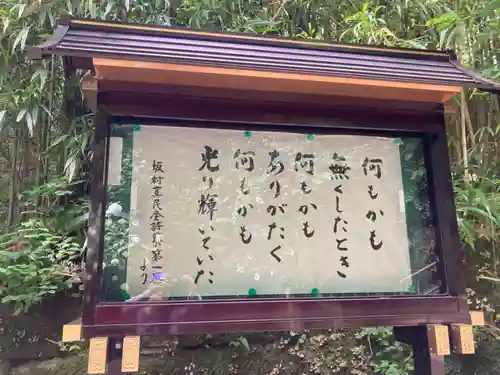 何もかも
無くしたとき
何もかも
ありがたく
何もかも
光り輝いていた
坂村真民全詩集第一巻より